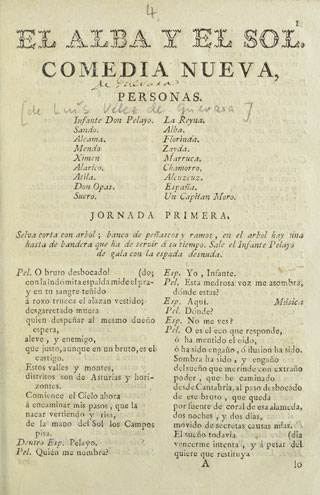 4.
1
EL ALBA Y EL SOL.
COMEDIA NUEVA,
de Guevara
PERSONAS.
[de Luis Velez de Guevara]
Infante Don Pelayo. La Reyna.
Sando. Alba.
Alcama. Florinda.
Mendo Zayda.
Ximen Marruca.
Alarico. Chamorro.
Atila. Alcuzcuz.
Don Opas. España.
Suero. Un Capitan Moro.
JORNADA PRIMERA.
Selva corta con arbol; banco de peñascos y ramos, en el arbol hay una
hasta de bandera que ha de servir á su tiempo. Sale el Infante Pelayo
de gala con la espada desnuda.
Pel. O bruto desbocado! (do;
con la indómita espalda mide el pra-
y en tu sangre teñido
á roxo trueca el alazan vestido;
desgarretado muera
quien despeñar al mesmo dueño
espera,
aleve, y enemigo,
que justo, aunque en un bruto, es el
castigo.
Estos valles y montes,
distritos son de Asturias y hori-
zontes.
Comience el Cielo ahora
á encaminar mis pasos, que la
nacar vertiendo y risa,
de la mano del Sol los Campos
pisa.
Dentro Esp. Pelayo.
Pel. Quién me nombra?
Esp. Yo, Infante.
Pel. Esta medrosa voz me asombra,
dónde estás?
Esp. Aqui. Música
Pel. Dónde?
Esp. No me ves?
Pel. O es el eco que responde,
ó ha mentido el oido,
ó ha sido engaño, ó ilusion ha sido.
Sombra ha sido, y engaño
del sueño que me rinde con extraño
poder, que he caminado
desde Cantabria, al paso desbocado
de ese bruto, que queda
por fuente de coral de esa alameda,
dos noches, y dos dias,
movido de secretas causas mias.
El sueño todavia (dia
vencerme intenta, y á pesar del
quiere que restituya
A lo